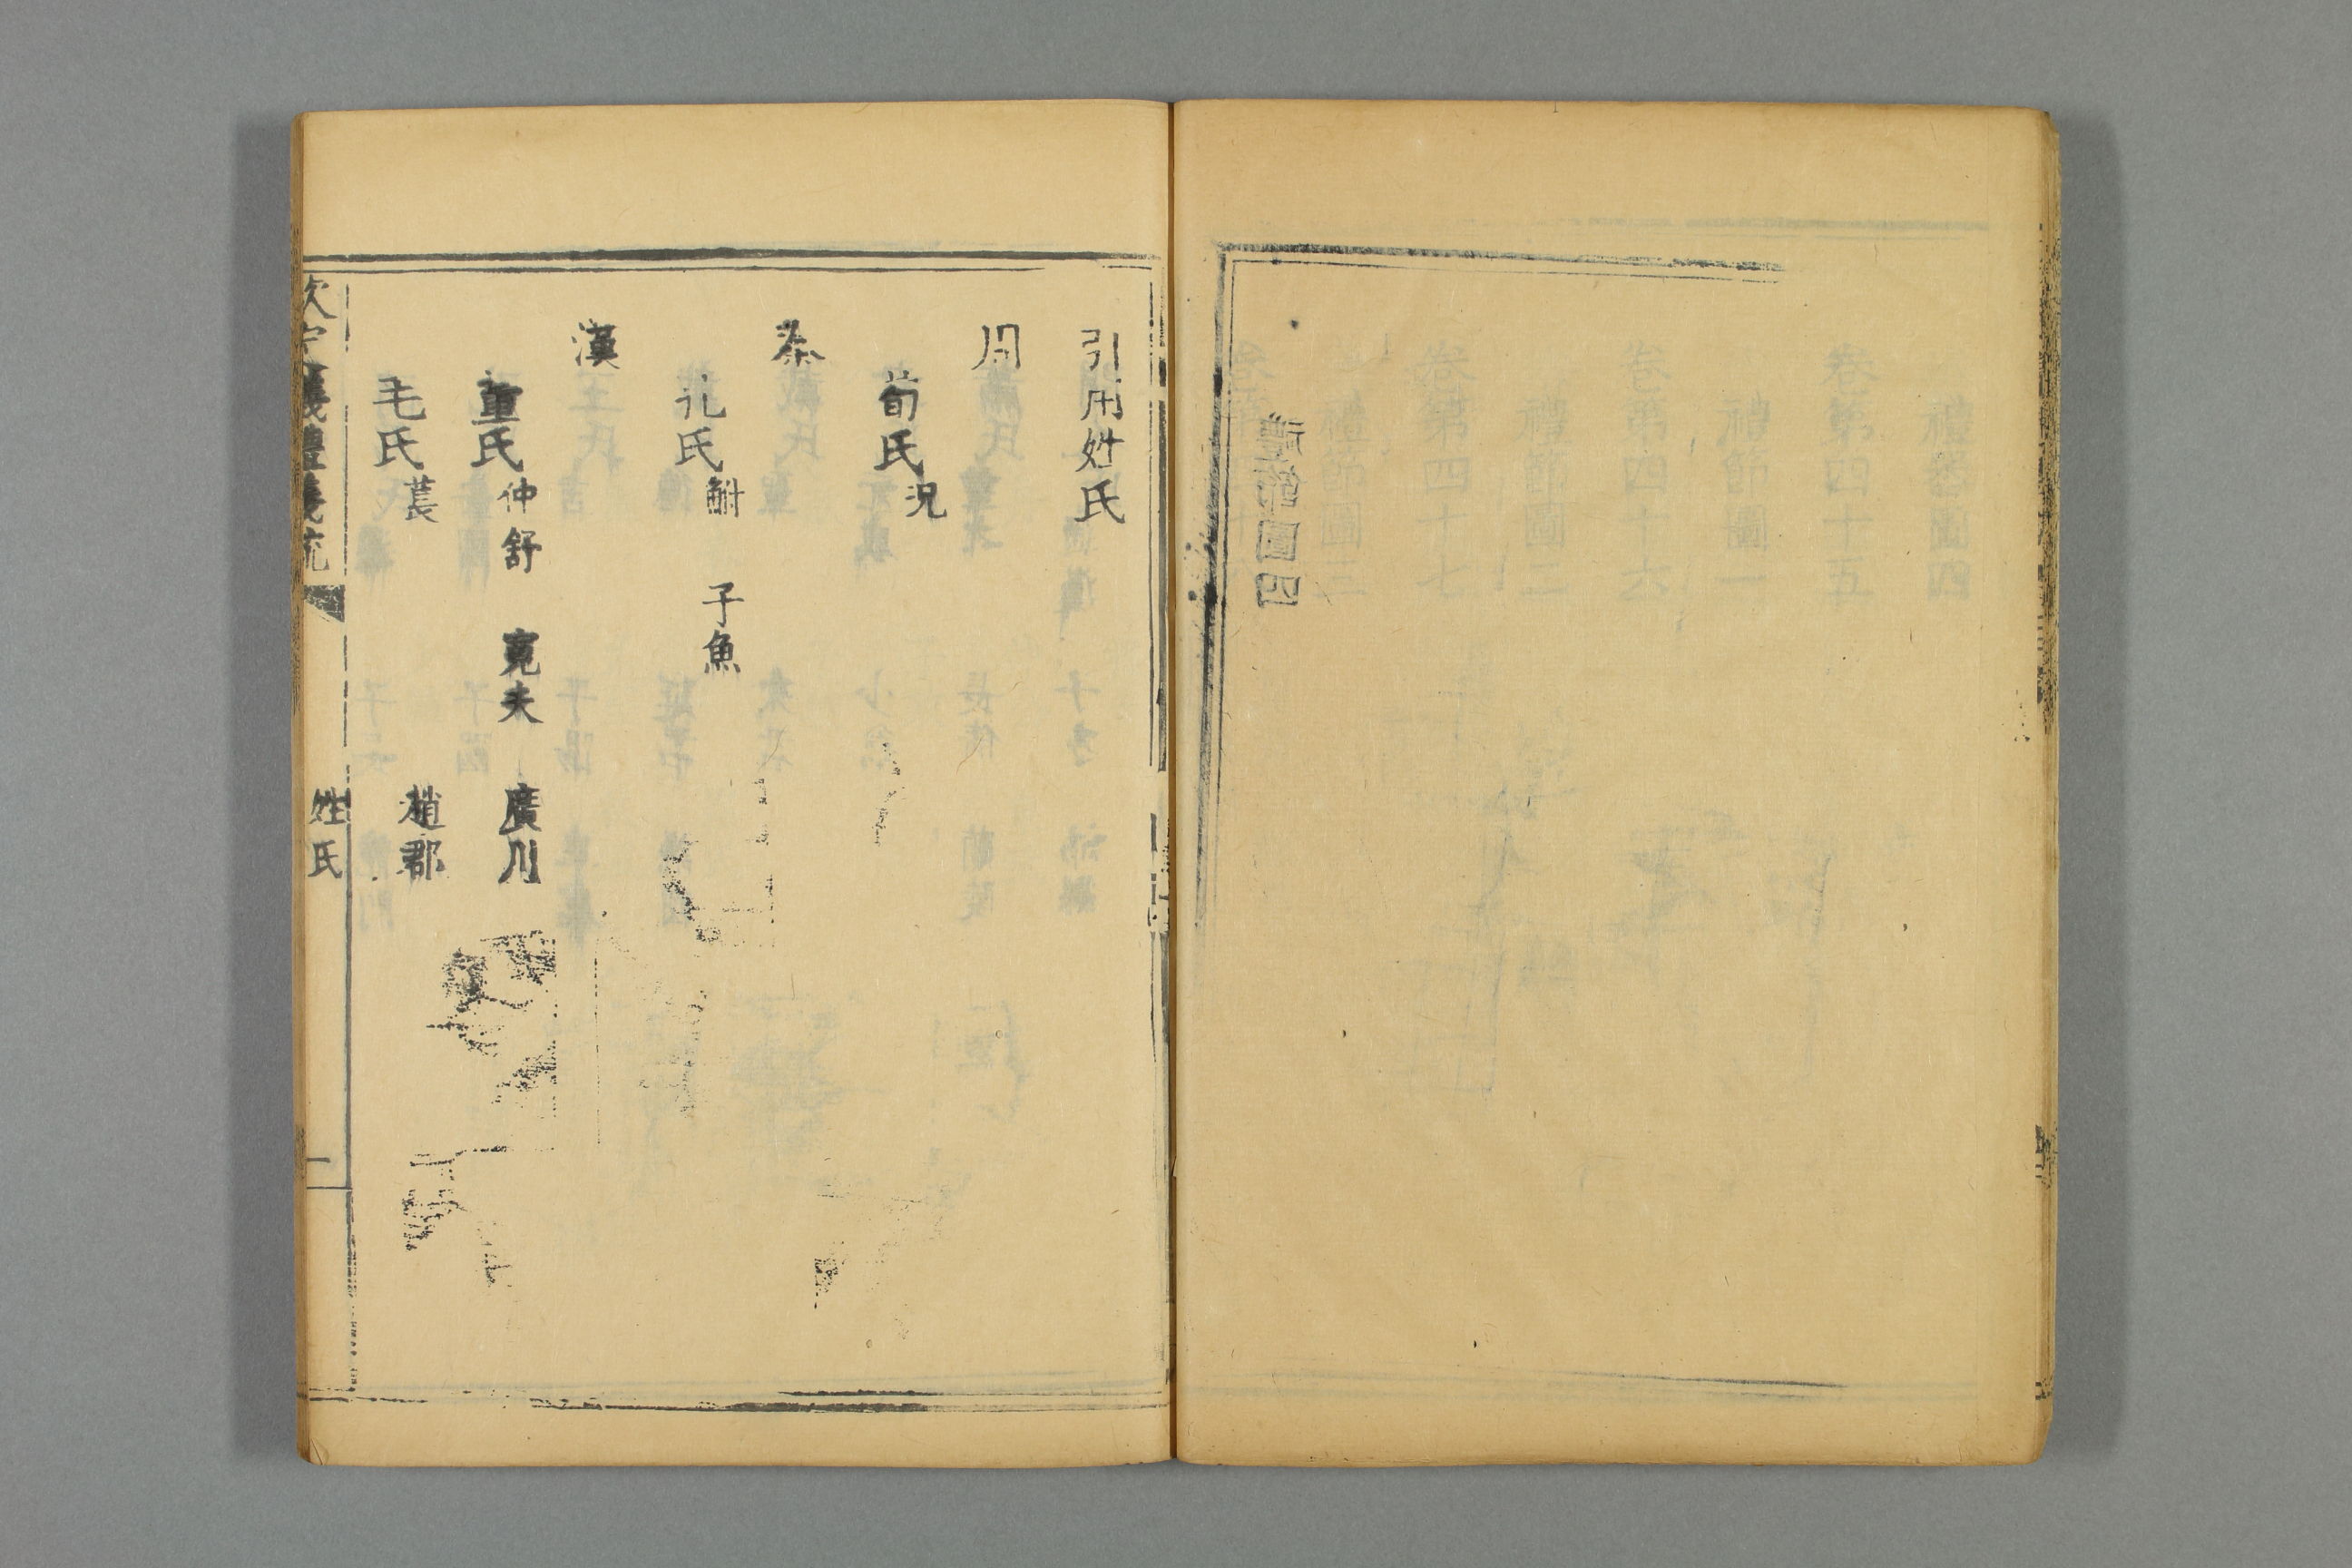 禮節圖四
引用姓氏
周
荀氏況
秦
孔氏鮒 子魚
漢
董氏仲舒 寬夫 廣川
毛氏萇 趙郡
欽定儀禮義疏 姓氏 一